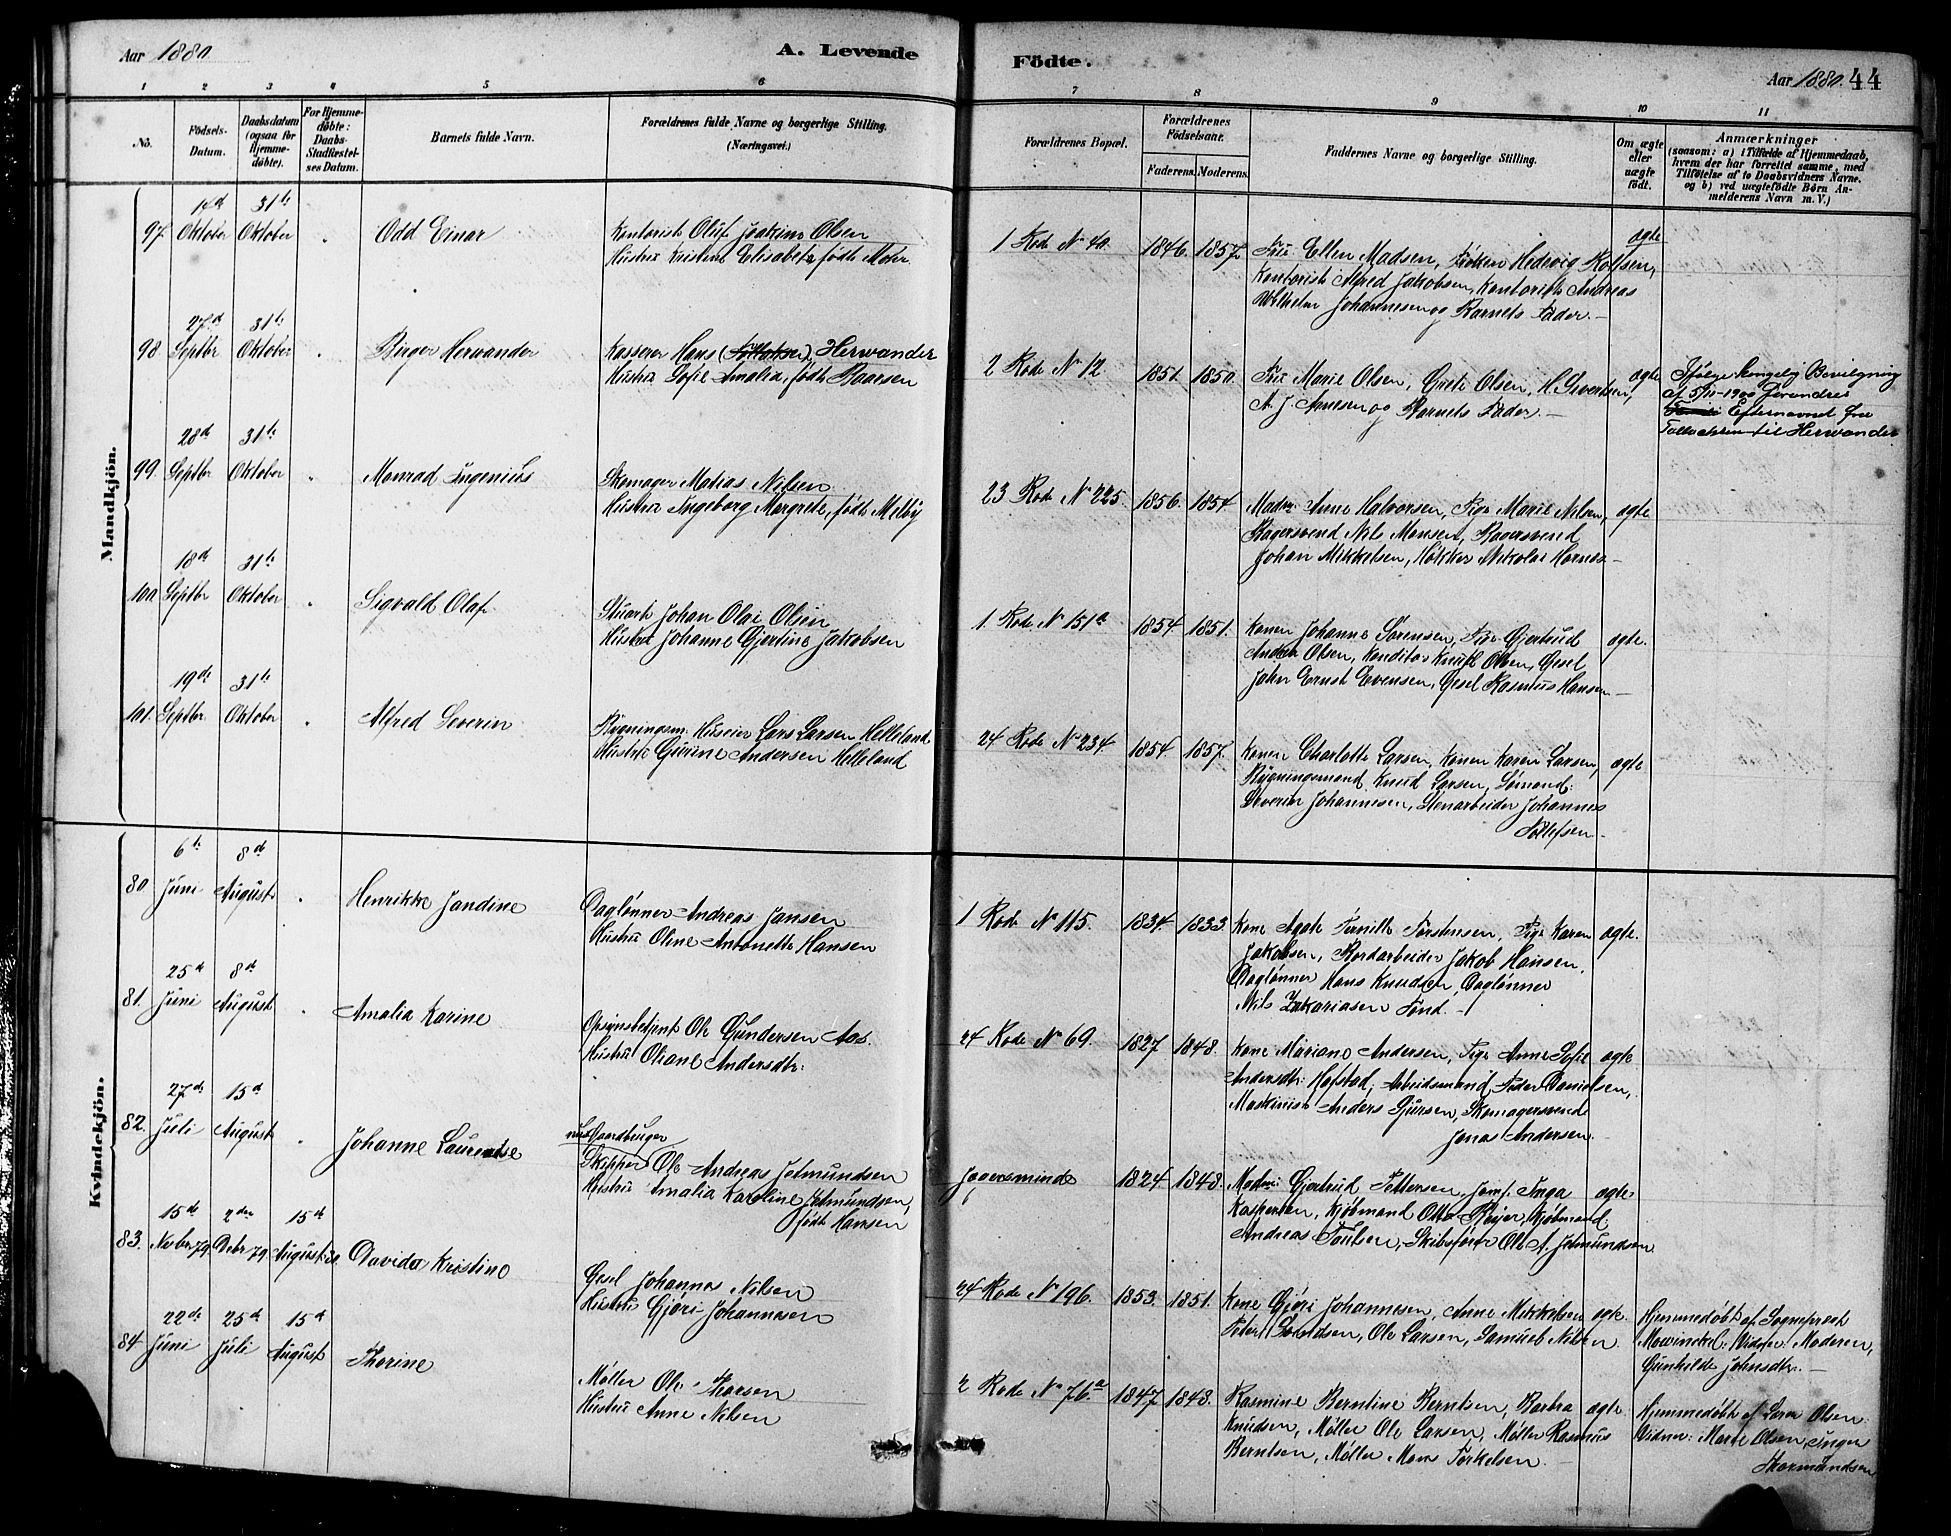 Aar 1880
A. Levende
Födte.
Aar 1880. 44
1 2 3 4 5 6 7 8 9 10 11
No.
Födsels-Datum.
Daabsdatum (ogsaa for Hjemme-döbte).
For Hjemme-döbte: Daabs-Stadfæstel-ses Datum.
Barnets fulde Navn.
Forældrenes fulde Navne og borgerlige Stilling. (Næringsvei.)
Forældrenes Bopæl.
Forældrenes Födselsaar.
Faderens. Moderens.
Faddernes Navne og borgerlige Stilling.
Om ægte eller uægte födt.
Anmærkninger
(saasom: a) i Tilfælde af Hjemmedaab, hvem der har forrettet samme, med Tilföielse af to Daabsvidners Navne. og b) ved uægtefödte Börn An-melderens Navn m. V.)
Mandkjön.
97. 14d Oktober 31te Oktober Odd Einar
Kontorist Oluf Joakim Olsen
Hustru Kristine Elisabeth, født Mohr
1 Rode No 40. 1846. 1857.
Fru Ellen Madsen, Frøken Hedevig Kolsen,
Kontorist Alfred Jakobsen, Kontorist Andreas
Wilhelm Johannesen og Barnets Fader. ægte
98 27d Septbr 31te Oktober Birger Herwander
Kasserer Hans (Tollaksen) Herwander
Hustru Sofie Amalia, født Baarsen
2 Rode No 12 1851. 1850.
Fru Marie Olsen, Grete Olsen, H. Sivertsen,
A. J. Arnesen og Barnets Fader. ægte
Ifølge kongelig Bevilgning
af 5/11-1900 forandres
Efternavnet fra
Tollachsen til Herwander
99. 28d Septbr 31te Oktober Monrad Ingenius
Skomager Matias Nilsen
Hustru Ingeborg Margrete, født Melby
23 Rode No 225. 1856. 1854
Mad. Anne Halvorsen, Pige Marie Nilsen,
Bagersvend Nils Monsen, Bagersvend
Johan Mikkelsen, Høkker Nikolai Hornes ægte
100 18d Septbr 31te Oktober Sigvald Olaf
Stuert Johan Olai Olsen
Hustru Johanne Gjertine Jakobsen
1. Rode No 151a 1854 1851.
Konen Johanne Sørensen, Pige Gjertrud
Andrea Olsen, Konditor Knut Olsen, Gesel
John Ernst Evensen, Gesel Rasmus Hansen ægte.
101. 19de Septbr 31te Oktober Alfred Severin
Bygningsm. Huseier Lars Larsen Helleland
Hustru Gurine Andersen Helleland
24 Rode No 234 1854. 1857.
Konen Charlotte Larsen, Konen Karen Larsen,
Bygningsmand Knud Larsen, Sømand
Severin Johannesen, Stenarbeider Johannes
Tollefsen ægte
Kvindekjön.
80. 6te Juni 8de August Henrikke Jandine
Daglønner Andreas Jansen
Hustru Oline Antonette Hansen
1 Rode No 115. 1834. 1833.
Kone Agate Pernille Torstensen, Pige Karen
Jakobsen, Bordarbeider Jakob Hansen,
Daglønner Hans Knudsen, Daglønner
Nils Zakariasen Tønd. ægte.
81. 25d Juni 8de August Amalia Karine
Opsynsbetjent Ole Gundersen Aas.
Hustru Oliane Andersdtr.
24 Rode No 69. 1827 1848.
Kone Mariane Andersen, Pige Anne Sofie
Andersdtr. Hofstad, Arbeidsmand Peder Danielsen,
Maskinist Anders Gjursen, Skomagersvend
Jonas Andersen. ægte
82. 27de Juli 15d August Johanne Lauentse
nu Gaardbruger
Skipper Ole Andreas Jotmundsen
Hustru Amalia Karoline Jotmundsen,
født Hansen
Joversminde 1824 1848.
Madm. Gjertrud Pettersen, Jomf. Inga
Kaspersen, Kjøbmand Otto Røyer, Kjøbmand
Andreas Poulsen, Skibsfører Ole A. Jotmundsen ægte
83. 15de Novbr 79. 2den Debr 79 15de August 80. Davida Kristine
Gesel Johannes Nilsen
Hustru Gjøri Johannesen
24 Rode No 196. 1853. 1851.
Kone Gjøri Johannesen, Anne Mikkelsen
Peter Sørensen, Ole Larsen, Samuel Nilsen ægte.
Hjemmedøbt af Sogneprest
Mowinckel: Vidner: Moderen,
Gunhilde Johnsdtr.
84. 22de Juni 25d Juli 15d August Thorine
Møller Ole Thorsen
Hustru Anne Nilsen
2 Rode No 76a 1847 1848.
Rasmine Berntine Berntsen, Barbra
Knudsen, Møller Ole Larsen, Møller Rasmus
Berntsen, Møller Mons Torkelsen. ægte.
Hjemmedøbt af Søren Olsen
Vidner: Marte Olsen, Inger
Thormundsen